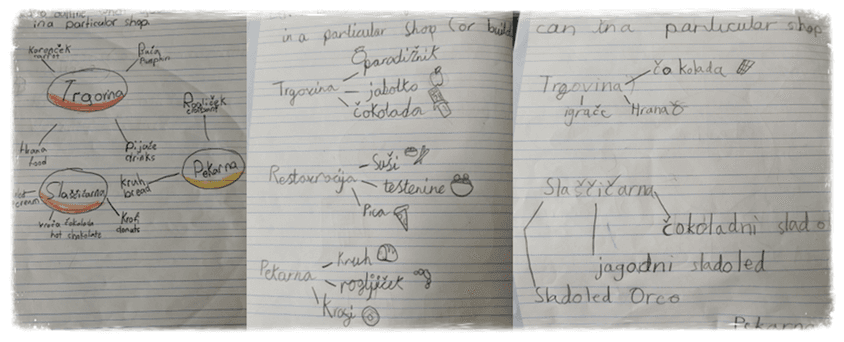 in a particular shop.
Korenček
carrot
Buča
Pumpkin
Trgovina
Rogliček
croissant
Hrana
food
Pijače
drinks
Pekarna
Kruh
bread
Slaščičarna
cream
Vroča čokolada
hot chokolate
Krofi
donuts
in a particular shop (or build
paradižnik
Trgovina
jabolko
čokolada
Suši
Restavracija
testenine
Pica
Kruh
Pekarna
rogljiček
Krofi
can in a particular shop
čokolada
Trgovina
igrače
Hrana
Slaščičarna
čokoladni slado
jagodni sladoled
Sladoled Oreo
Pekarna